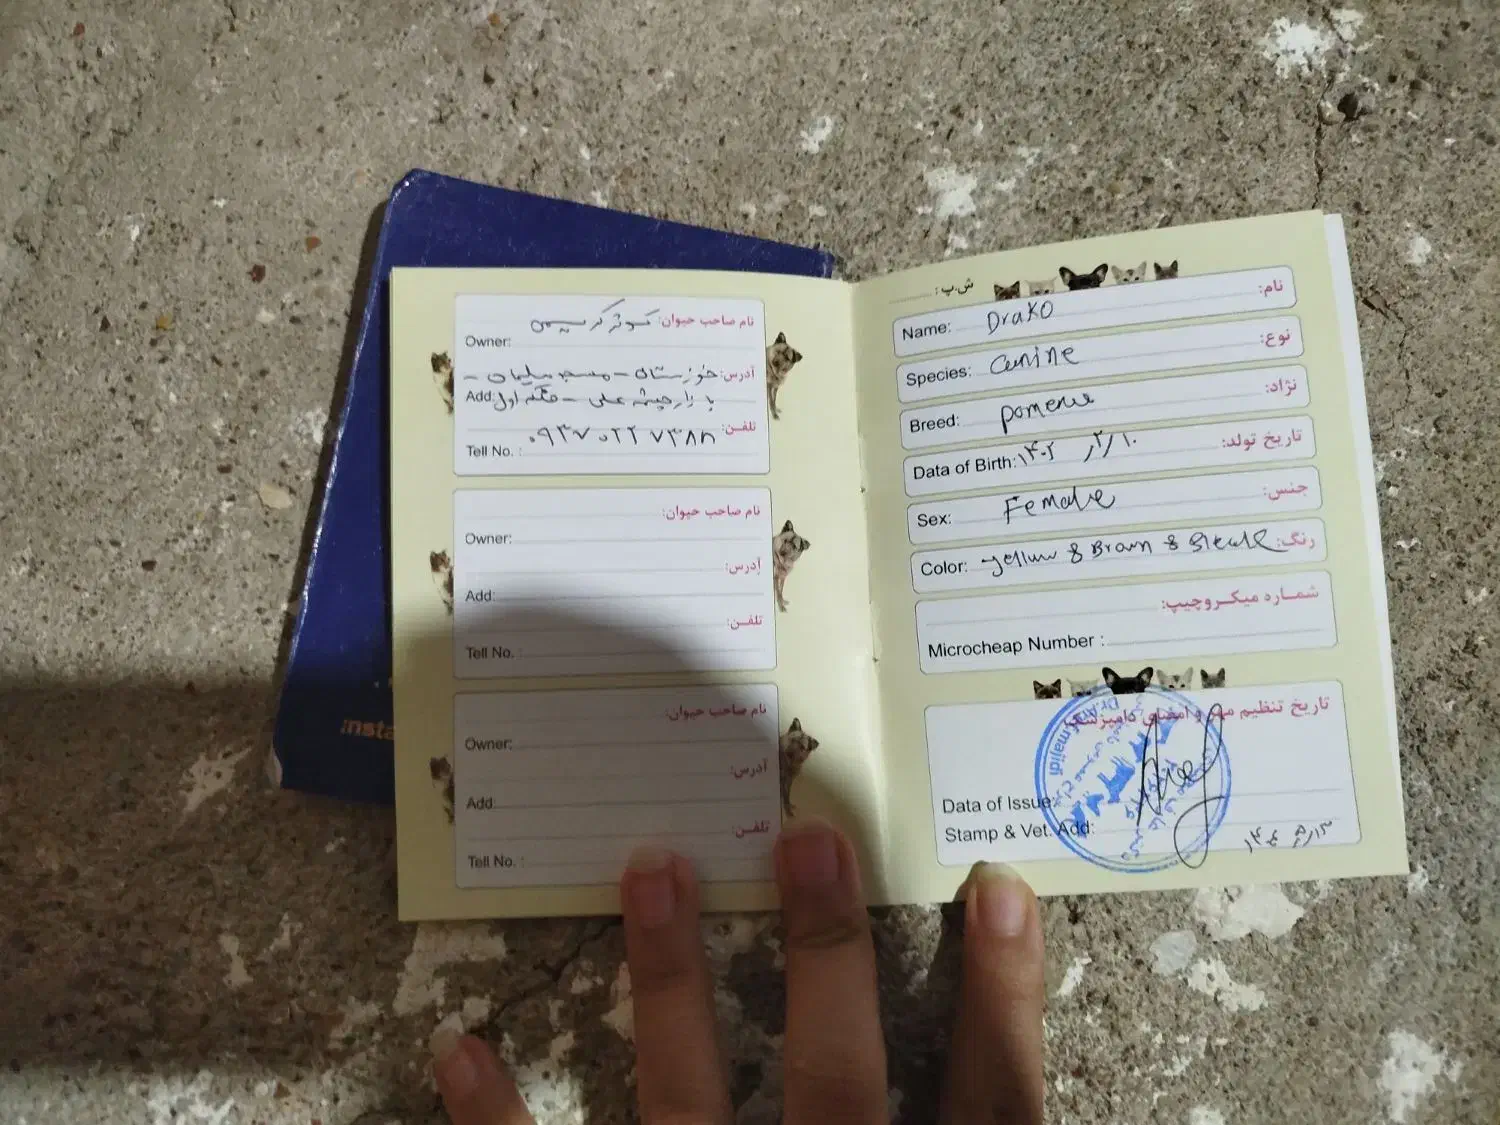 نام صاحب حیوان: کوثر کریمی
Owner:
آدرس: خوزستان - مسجدسلیمان -
Add: بازار چشمه علی -
تلفن:
Tell No. : ۰۹۳۷۰۲۲۷۳۸۸
نام صاحب حیوان:
Owner:
آدرس:
Add:
تلفن:
Tell No. :
نام صاحب حیوان:
Owner:
آدرس:
Add
تلفن:
Tell No. :
insta
ش.پ:
نام:
Name: Drako
نوع:
Species: canine
نژاد:
Breed: pomerw
تاریخ تولد:
Data of Birth: ۱۴۰۲ / ۲ / ۱۰
جنس:
Sex: Female
رنگ:
Color: yellow & Brown &
شماره میکروچیپ:
Microcheap Number :
تاریخ تنظیم مهر و امضای دامپزشک
Data of Issue:
Stamp & Vet. Add:
majidi